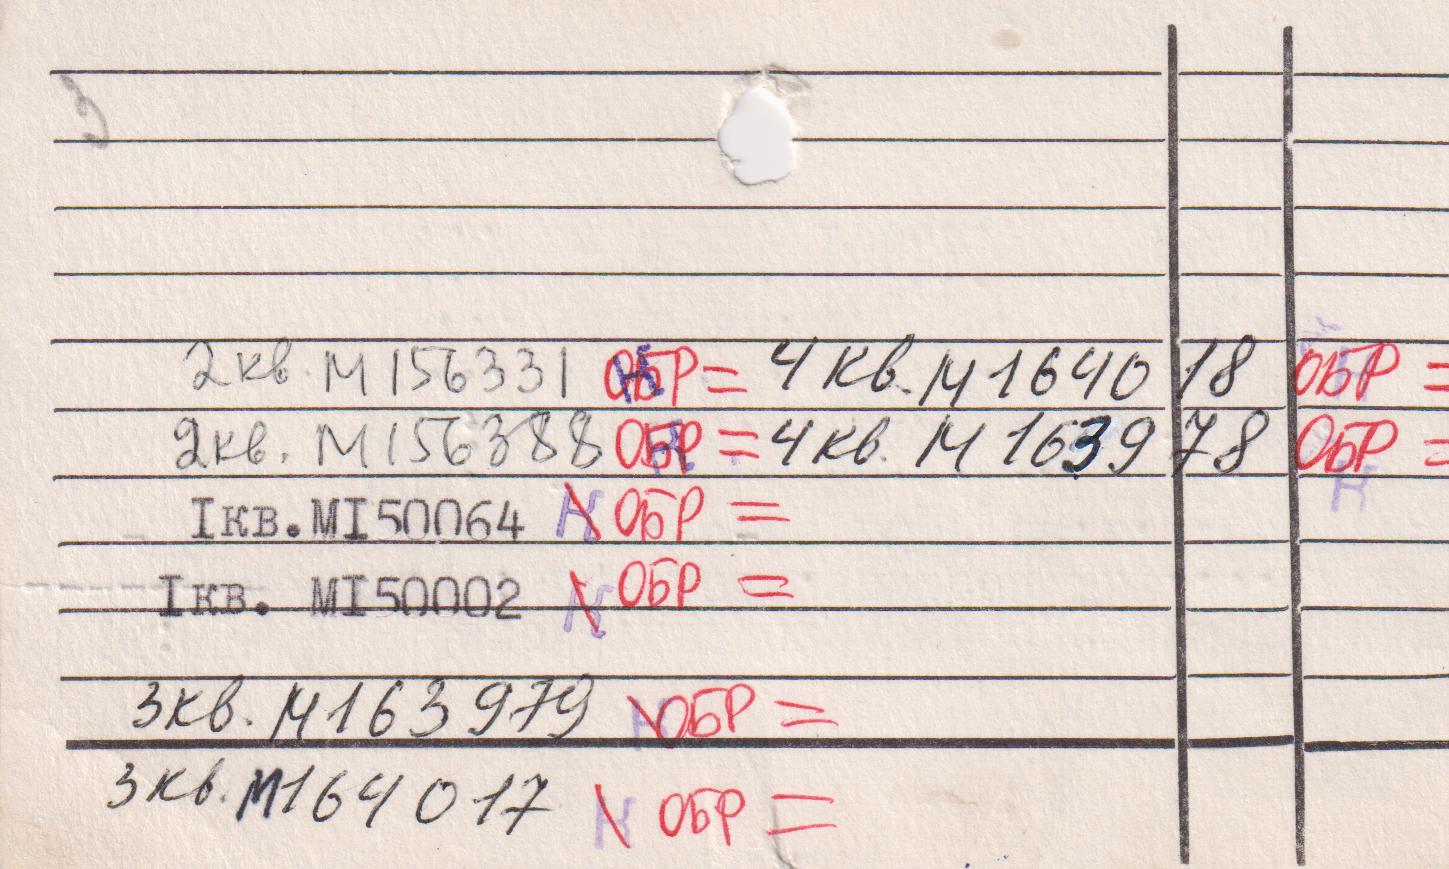 2кв. М156331 ОБР = 4кв. М164018 ОБР =
2кв. М156388 ОБР = 4кв. М163978 ОБР =
Iкв.МI50064 К ОБР =
Iкв. МI50002 К ОБР =
3кв. М163979 К ОБР =
3кв. М164017 К ОБР =